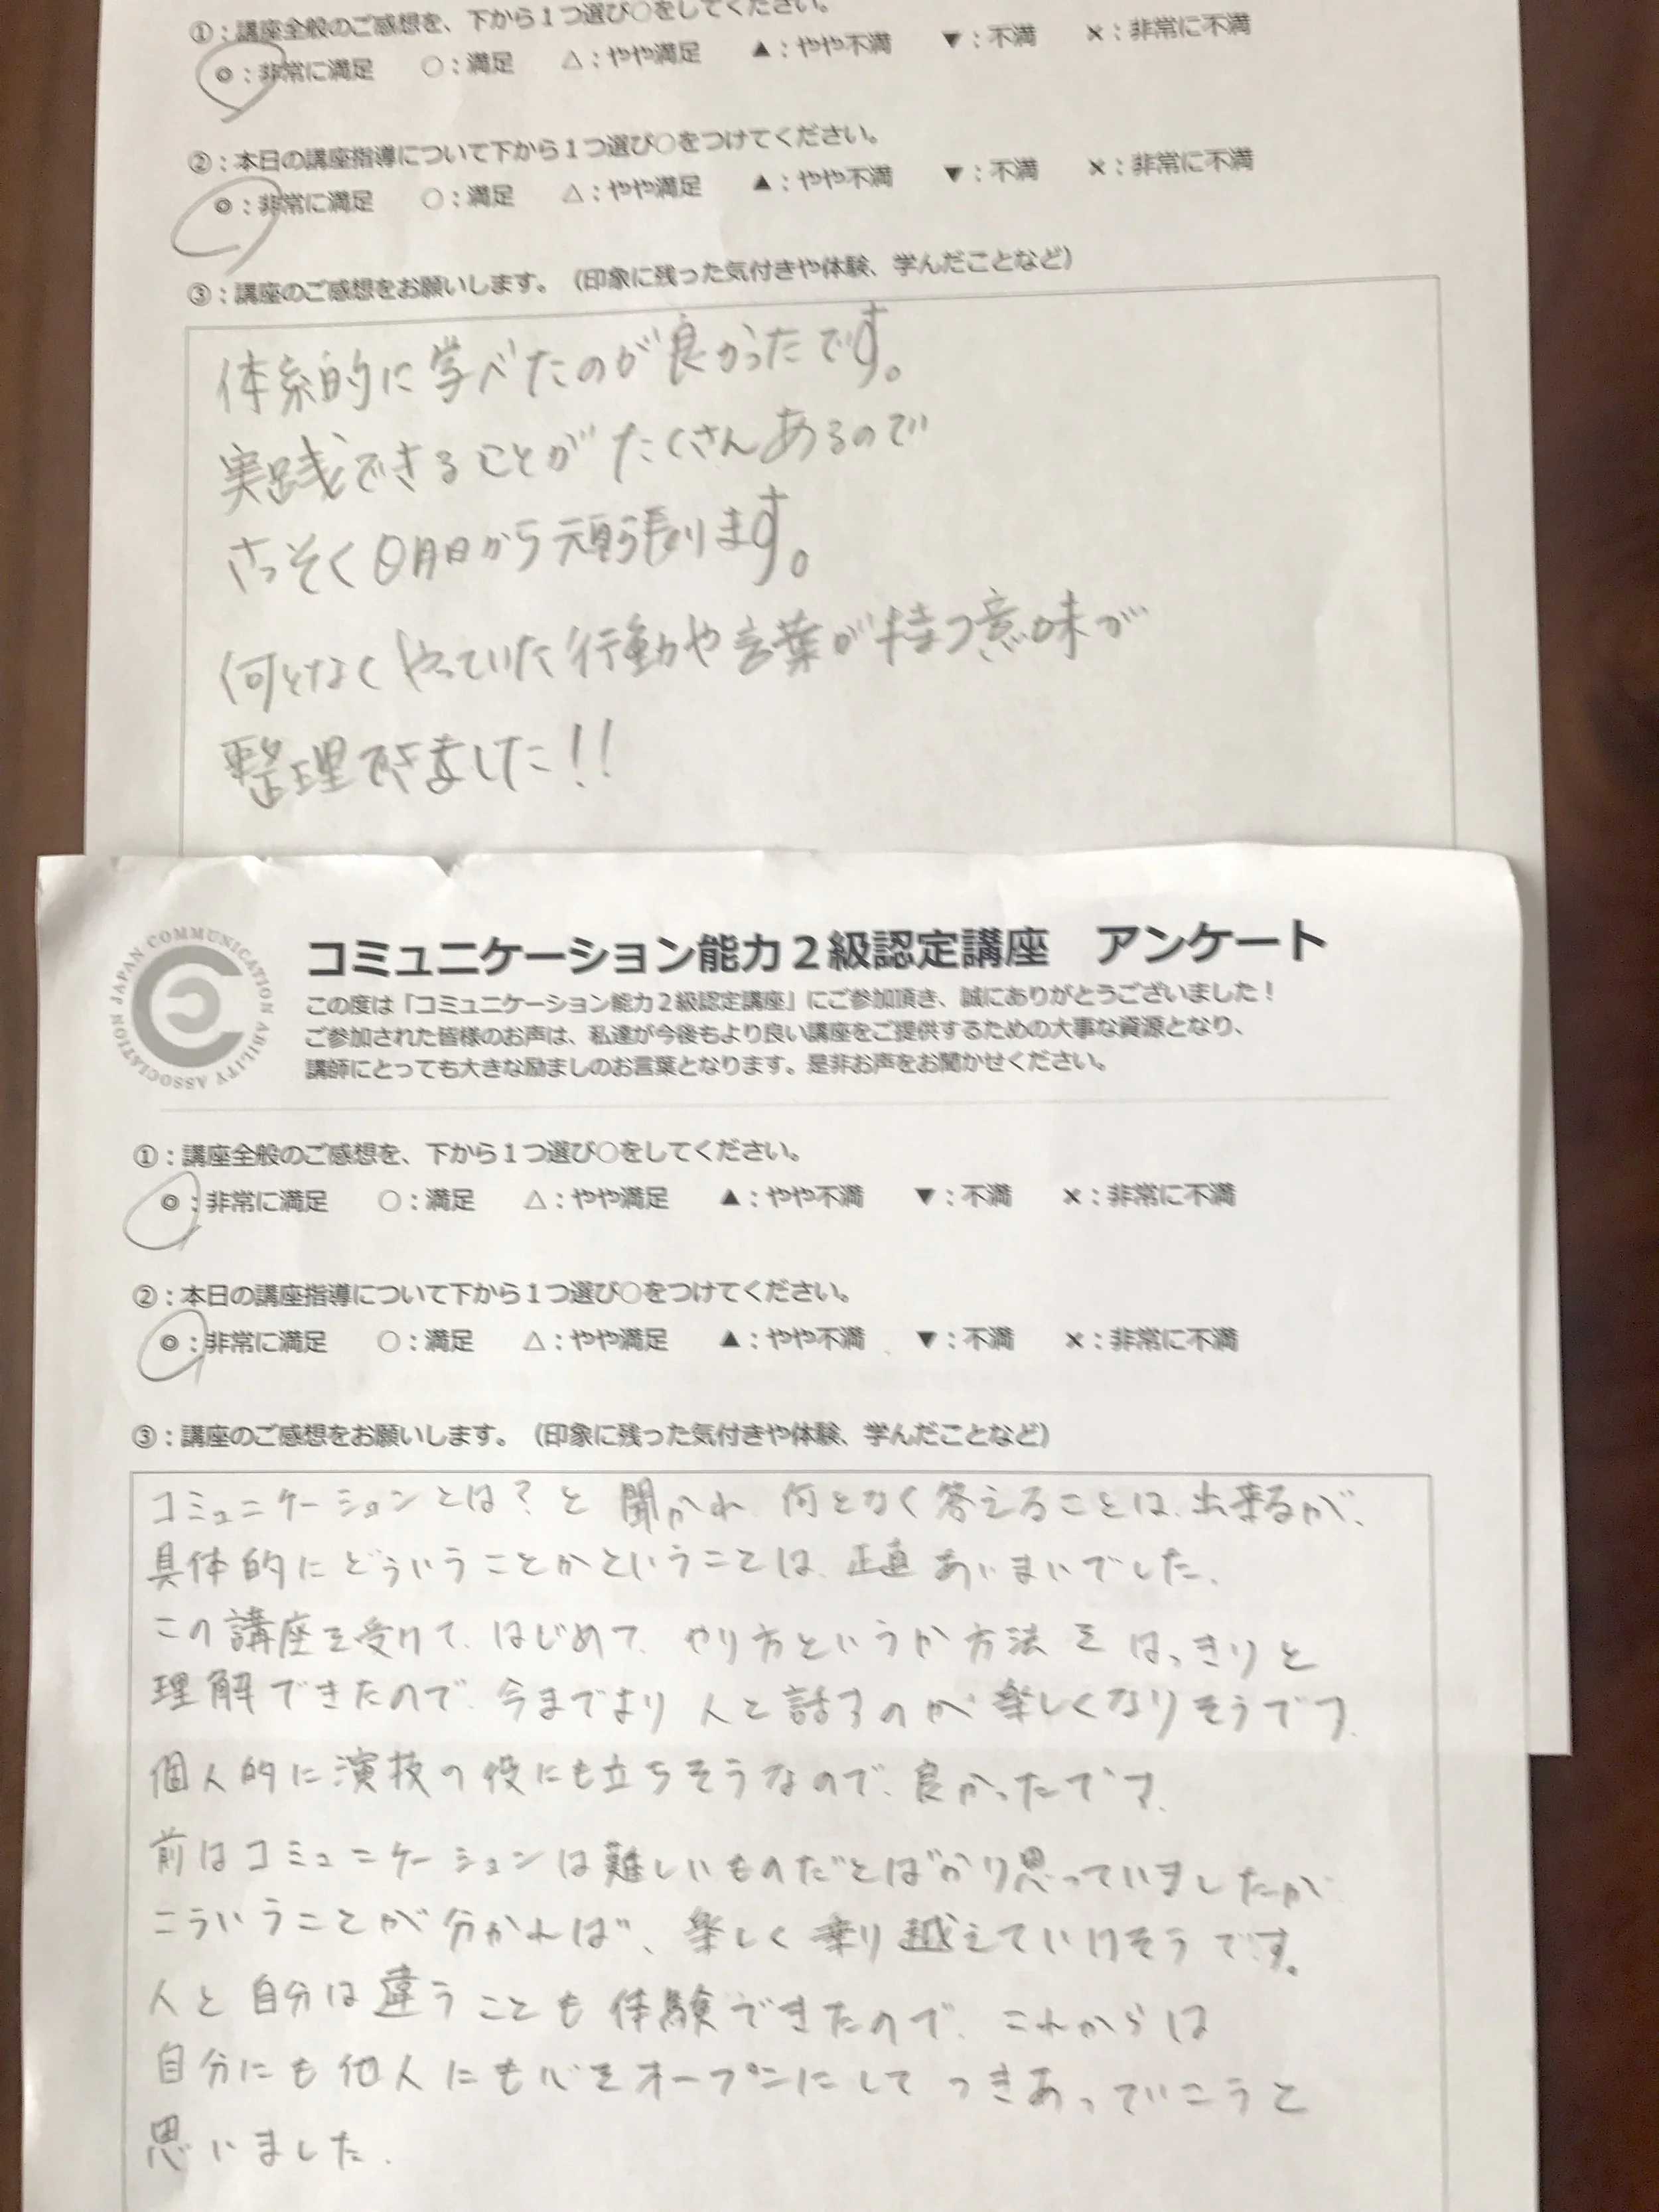 ①：講座全般のご感想を、下から１つ選び○をしてください。
◎：非常に満足　○：満足　△：やや満足　▲：やや不満　▼：不満　×：非常に不満
②：本日の講座指導について下から１つ選び○をつけてください。
◎：非常に満足　○：満足　△：やや満足　▲：やや不満　▼：不満　×：非常に不満
③：講座のご感想をお願いします。（印象に残った気付きや体験、学んだことなど）
体系的に学べたのが良かったです。
実践できることがたくさんあるので
さっそく明日から頑張ります。
何となくやっていた行動や言葉が持つ意味が
整理できました!!
JAPAN COMMUNICATION ABILITY ASSOCIATION
コミュニケーション能力２級認定講座　アンケート
この度は「コミュニケーション能力２級認定講座」にご参加頂き、誠にありがとうございました！
ご参加された皆様のお声は、私達が今後もより良い講座をご提供するための大事な資源となり、
講師にとっても大きな励ましのお言葉となります。是非お声をお聞かせください。
①：講座全般のご感想を、下から１つ選び○をしてください。
◎：非常に満足　○：満足　△：やや満足　▲：やや不満　▼：不満　×：非常に不満
②：本日の講座指導について下から１つ選び○をつけてください。
◎：非常に満足　○：満足　△：やや満足　▲：やや不満　▼：不満　×：非常に不満
③：講座のご感想をお願いします。（印象に残った気付きや体験、学んだことなど）
コミュニケーションとは？と聞かれ、何となく答えることは、出来るが、
具体的にどういうことかということは、正直あいまいでした。
この講座を受けて、はじめて、やり方というか方法をはっきりと
理解できたので、今までより人と話すのが楽しくなりそうです。
個人的に演技の役にも立ちそうなので、良かったです。
前はコミュニケーションは難しいものだとばかり思っていましたが、
こういうことが分かれば、楽しく乗り越えていけそうです。
人と自分は違うことも体験できたので、これからは
自分にも他人にも心をオープンにしてつきあっていこうと
思いました。